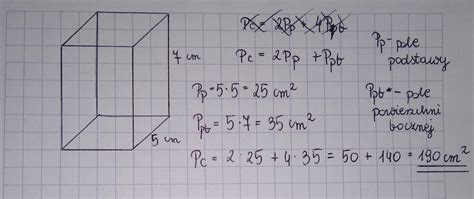 Pc = 2Pp + 4Ppb
Pc = 2Pp + Ppb
Pp - pole podstawy
7 cm
Pp = 5·5 = 25 cm²
Ppb - pole powierzchni bocznej
Ppb = 5·7 = 35 cm²
5 cm
Pc = 2·25 + 4·35 = 50 + 140 = 190 cm²